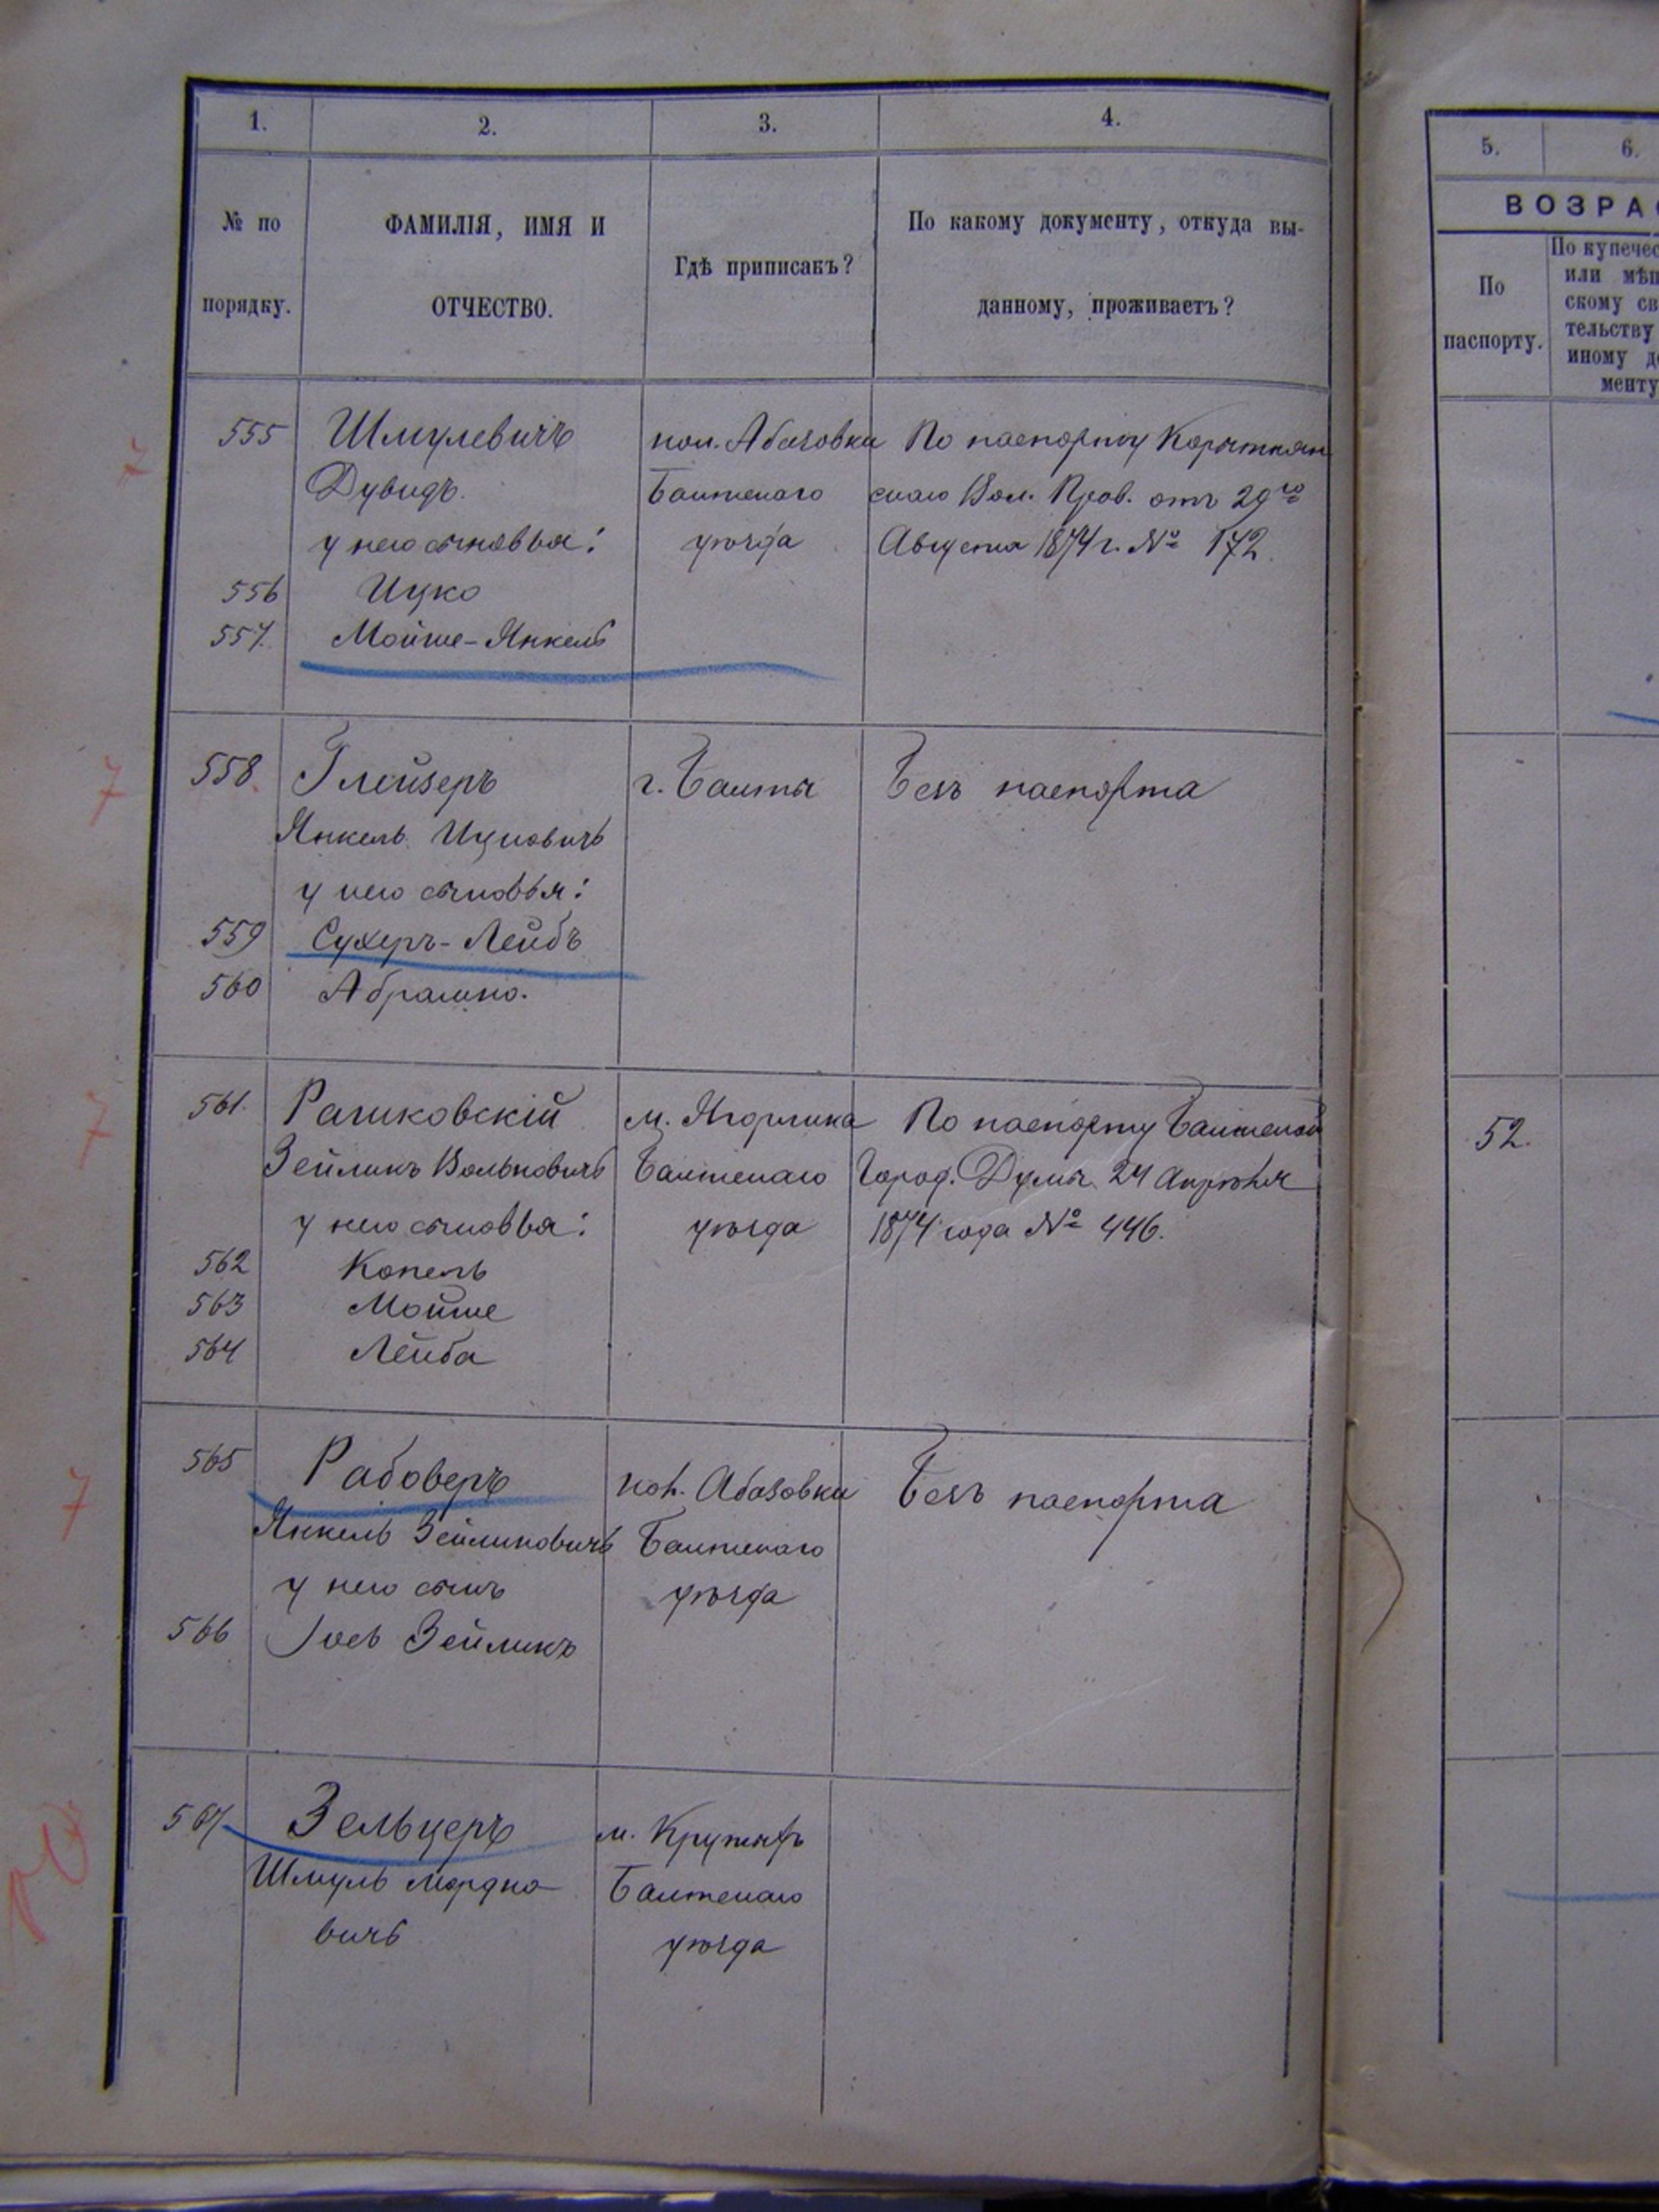 1. 2. 3. 4.
№ по порядку.
ФАМИЛІЯ, ИМЯ И
ОТЧЕСТВО.
Гдѣ приписакъ?
По какому документу, откуда вы-
данному, проживаетъ?
555 Шмулевичъ пол. Абазовки По паспорту
Дувидъ. Балтскаго скаго Вол. Прав. отъ 29го
у него сыновья: уѣзда Августа 1874 г. № 172.
556 Ицко
557. Мойше-Янкель
558. Глейзеръ г. Балты Безъ паспорта
Янкель Ицковичъ
у него сыновья:
559 Сухеръ-Лейбъ
560 Абрамко.
561. Рашковскій м. Ягорлика По паспорту Балтской
Зейликъ Вольковичъ Балтскаго Город. Думы 24 Апрѣля
у него сыновья: уѣзда 1874 года № 446.
562 Копель
563 Мойше
564 Лейба
565 Рабоверъ пол. Абазовки Безъ паспорта
Янкель Зейликовичъ Балтскаго
у него сынъ уѣзда
566 Іось Зейликъ
567 Зельцеръ м.
Шмуль Мордко- Балтскаго
вичъ уѣзда
5. 6.
ВОЗРА
По
паспорту.
По купечес
или мѣщ
скому св
тельству
иному до
менту
52.